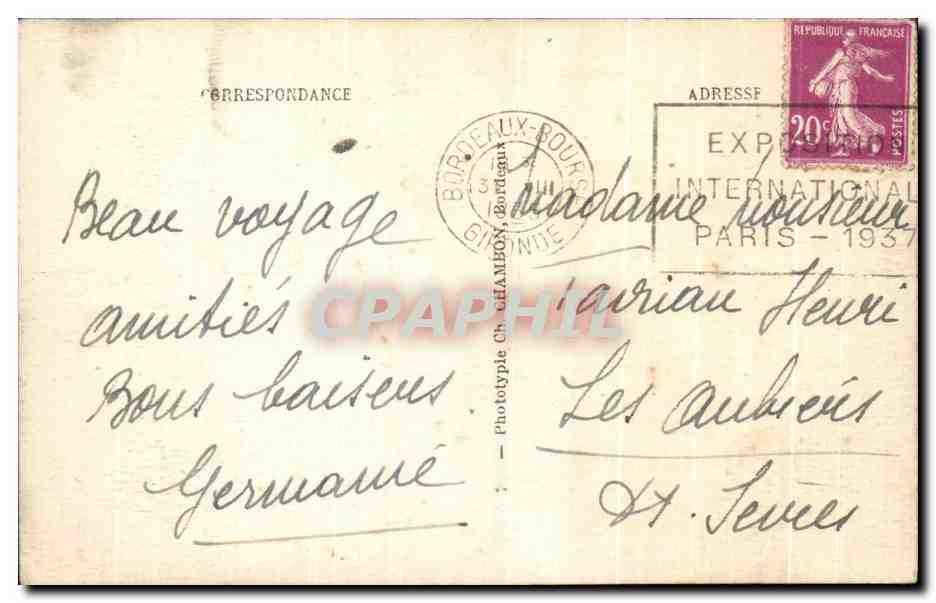 CORRESPONDANCE
ADRESSE
REPUBLIQUE FRANÇAISE
20c
POSTES
BORDEAUX-BOURSE
GIRONDE
EXPOSITION
INTERNATIONAL
PARIS - 1937
Beau voyage
amitiés
Bons baisers
Germaine
- Phototypie Ch. CHAMBON, Bordeaux
Madame Monsieur
Henri
Les Aubiers
Dx. Sevres
CPAPHIL